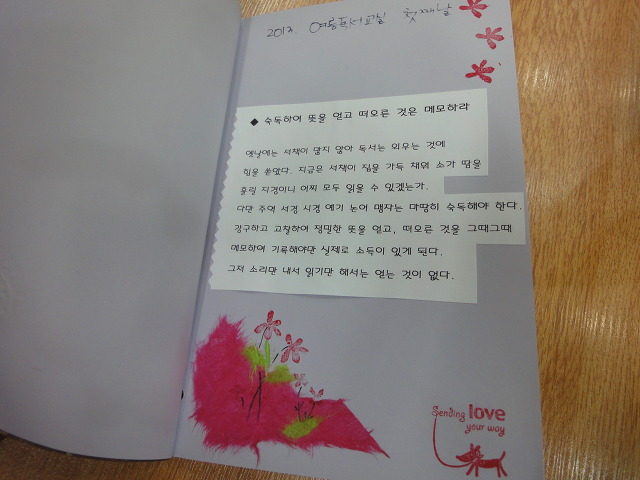 2013. 여름독서교실 첫째날
◆ 숙독하여 뜻을 얻고 떠오른 것은 메모하라
옛날에는 서책이 많지 않아 독서는 외우는 것에
힘을 쏟았다. 지금은 서책이 집을 가득 채워 소가 땀을
흘릴 지경이니 어찌 모두 읽을 수 있겠는가.
다만 주역 서경 시경 예기 논어 맹자는 마땅히 숙독해야 한다.
강구하고 고찰하여 정밀한 뜻을 얻고, 떠오른 것을 그때그때
메모하여 기록해야만 실제로 소득이 있게 된다.
그저 소리만 내서 읽기만 해서는 얻는 것이 없다.
Sending love
your way